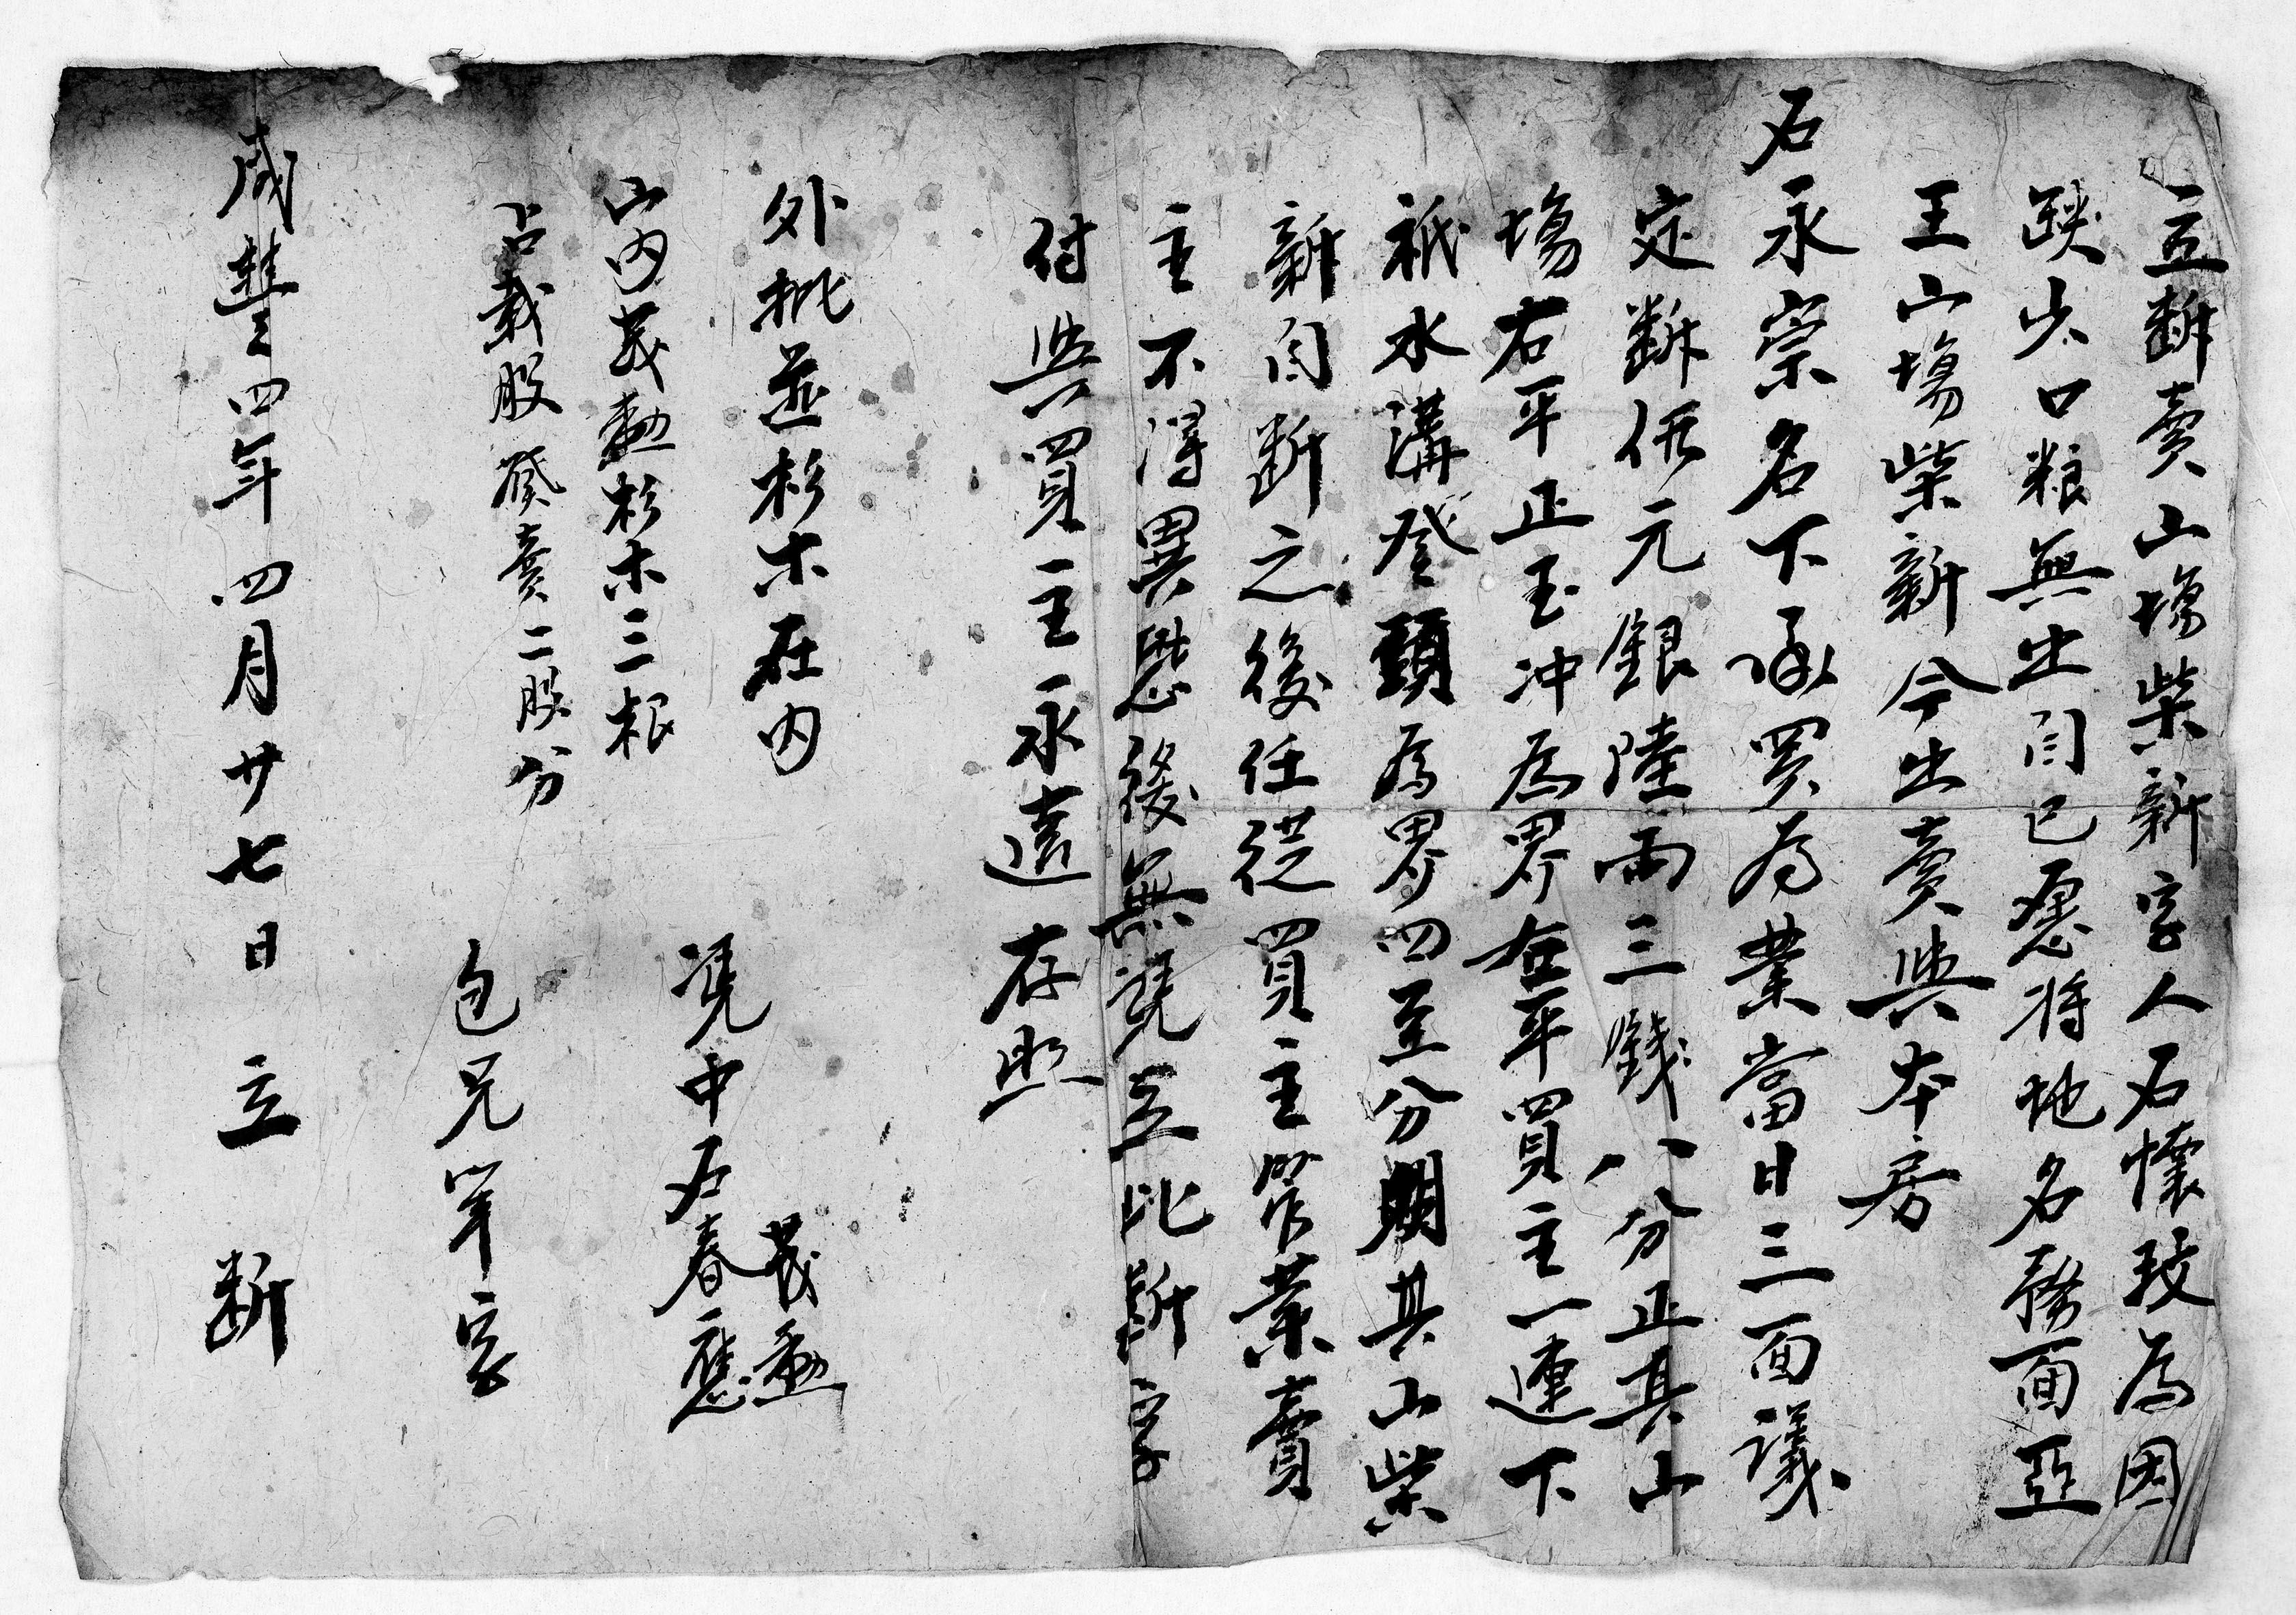 立斷賣山塲柴新字人石懷玟為因
缺少口粮無出自己愿將地名務面亞
王山塲柴新今出賣與本房
石永宗名下承買為業當日三面議
定斷價元銀陸兩三錢八分正其山
塲右平正至冲為界左平買主一連下
祇水溝登頭為界四至分明其山柴
新自斷之後任從買主管業賣
主不得異悉後無憑立此斷字
付與買主永遠存照
外批並杉木在內
山內茂勳杉木三根
占栽股發賣二股分
憑中石春應
茂勳
包兄筆字
咸豐四年四月廿七日立斷